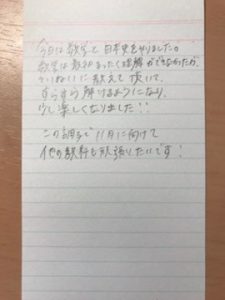 今日は数学と日本史をやりました。
数学は最初まったく理解ができなかったが、
ていねいに教えて頂いて、
すらすら解けるようになり、
少し楽しくなり出した!!
この調子で11月に向けて
他の教科も頑張りたいです!